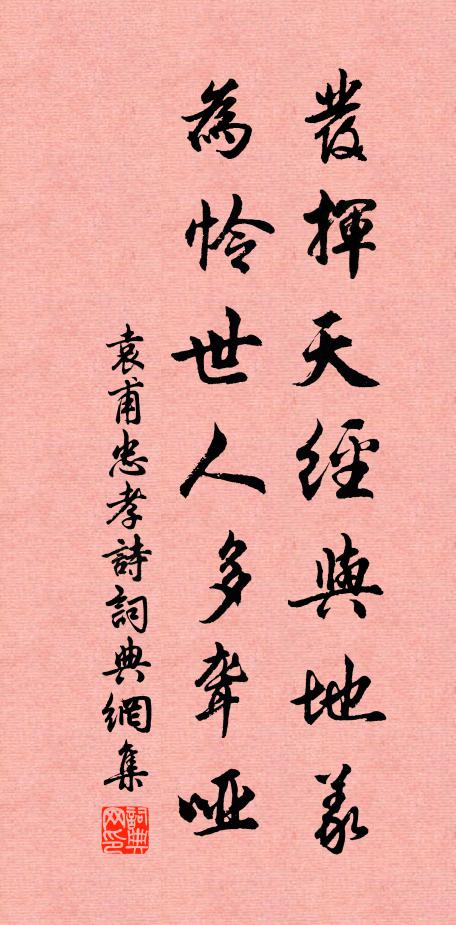 發揮天經與地義
為憐世人多聾啞
袁甫忠孝詩詞典網集
詞典网印